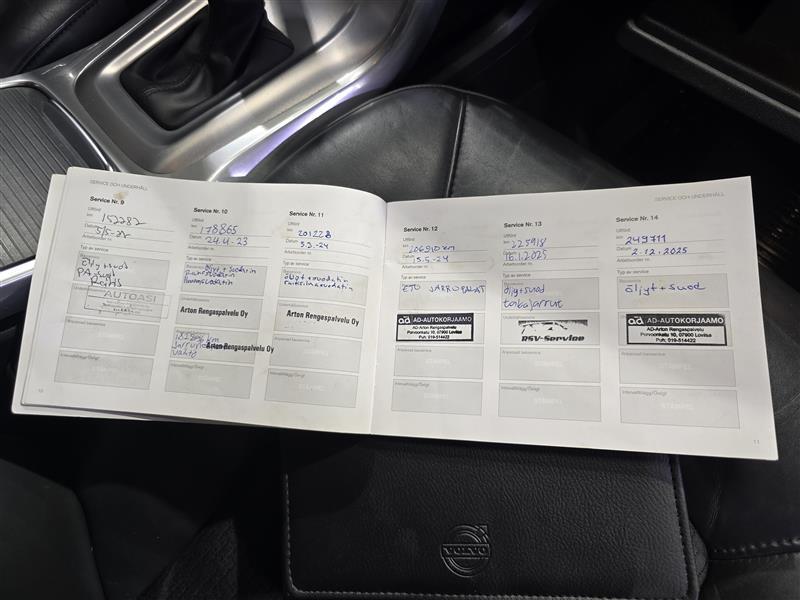 SERVICE OCH UNDERHÅLL
Service Nr. 9
Utförd
km 152282
Datum 5/5-22
Arbetsorder nr.
Typ av service
öljy+suod
AUTOASI
Avancerad basservice
STÄMPEL
Intervalltillägg/Övrigt
STÄMPEL
10
Service Nr. 10
Utförd
km 178865
Datum 24.4-23
Arbetsorder nr.
Typ av service
öljyt+suodatin
Arton Rengaspalvelu Oy
Arton Rengaspalvelu Oy
vaihto
Intervalltillägg/Övrigt
STÄMPEL
Service Nr. 11
Utförd
km 201228
Datum 5.3.-24
Arbetsorder nr.
Typ av service
öljyt+suodatin
raitisilmasuodatin
Arton Rengaspalvelu Oy
Avancerad basservice
STÄMPEL
Intervalltillägg/Övrigt
STÄMPEL
SERVICE OCH UNDERHÅLL
Service Nr. 12
Utförd
km
Datum
Arbetsorder nr.
Typ av service
ETU JARRUPALAT
ad AD-AUTOKORJAAMO
AD-Arton Rengaspalvelu
Porvoonkatu 10, 07900 Loviisa
Puh: 019-514422
Avancerad basservice
STÄMPEL
Intervalltillägg/Övrigt
STÄMPEL
Service Nr. 13
Utförd
km 225918
Datum 16.1.2025
Arbetsorder nr.
Typ av service
öljyt+suod
takajarrut
RSV-Service
Avancerad basservice
STÄMPEL
Intervalltillägg/Övrigt
STÄMPEL
Service Nr. 14
Utförd
km 249711
Datum 2.12.2025
Arbetsorder nr.
Typ av service
öljyt+suod
ad AD-AUTOKORJAAMO
AD-Arton Rengaspalvelu
Porvoonkatu 10, 07900 Loviisa
Puh: 019-514422
Avancerad basservice
STÄMPEL
Intervalltillägg/Övrigt
STÄMPEL
11
VOLVO